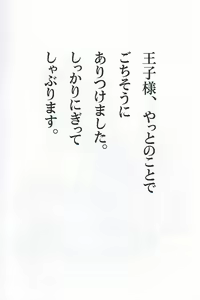 王子様、やっとのことで
ごちそうに
ありつけました。
しっかりにぎって
しゃぶります。